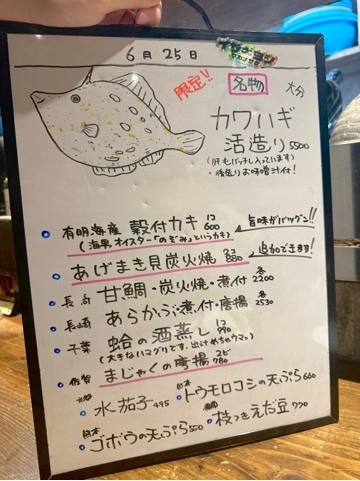 6月25日
限定!!
名物
大分
カワハギ
活造り 5500
(肝もバッチし入っています)
・後造りお味噌汁付!
有明海産 殻付カキ 1コ 600 旨味がバツグン!!
(海男オイスター「のぞみ」というカキ)
あげまき貝炭火焼 2コ 880 追加できます!
長崎 甘鯛・炭火焼・煮付 各 2200
長崎 あらかぶ・煮付・唐揚 各 2530
千葉 蛤の酒蒸し 1コ 990
(大きなハマグリです。出汁めちゃウマ。)
佐賀 まじゃくの唐揚 2ピ 780
水茄子 495
熊本 トウモロコシの天ぷら 660
熊本 ゴボウの天ぷら 550
枝つきえだ豆 770